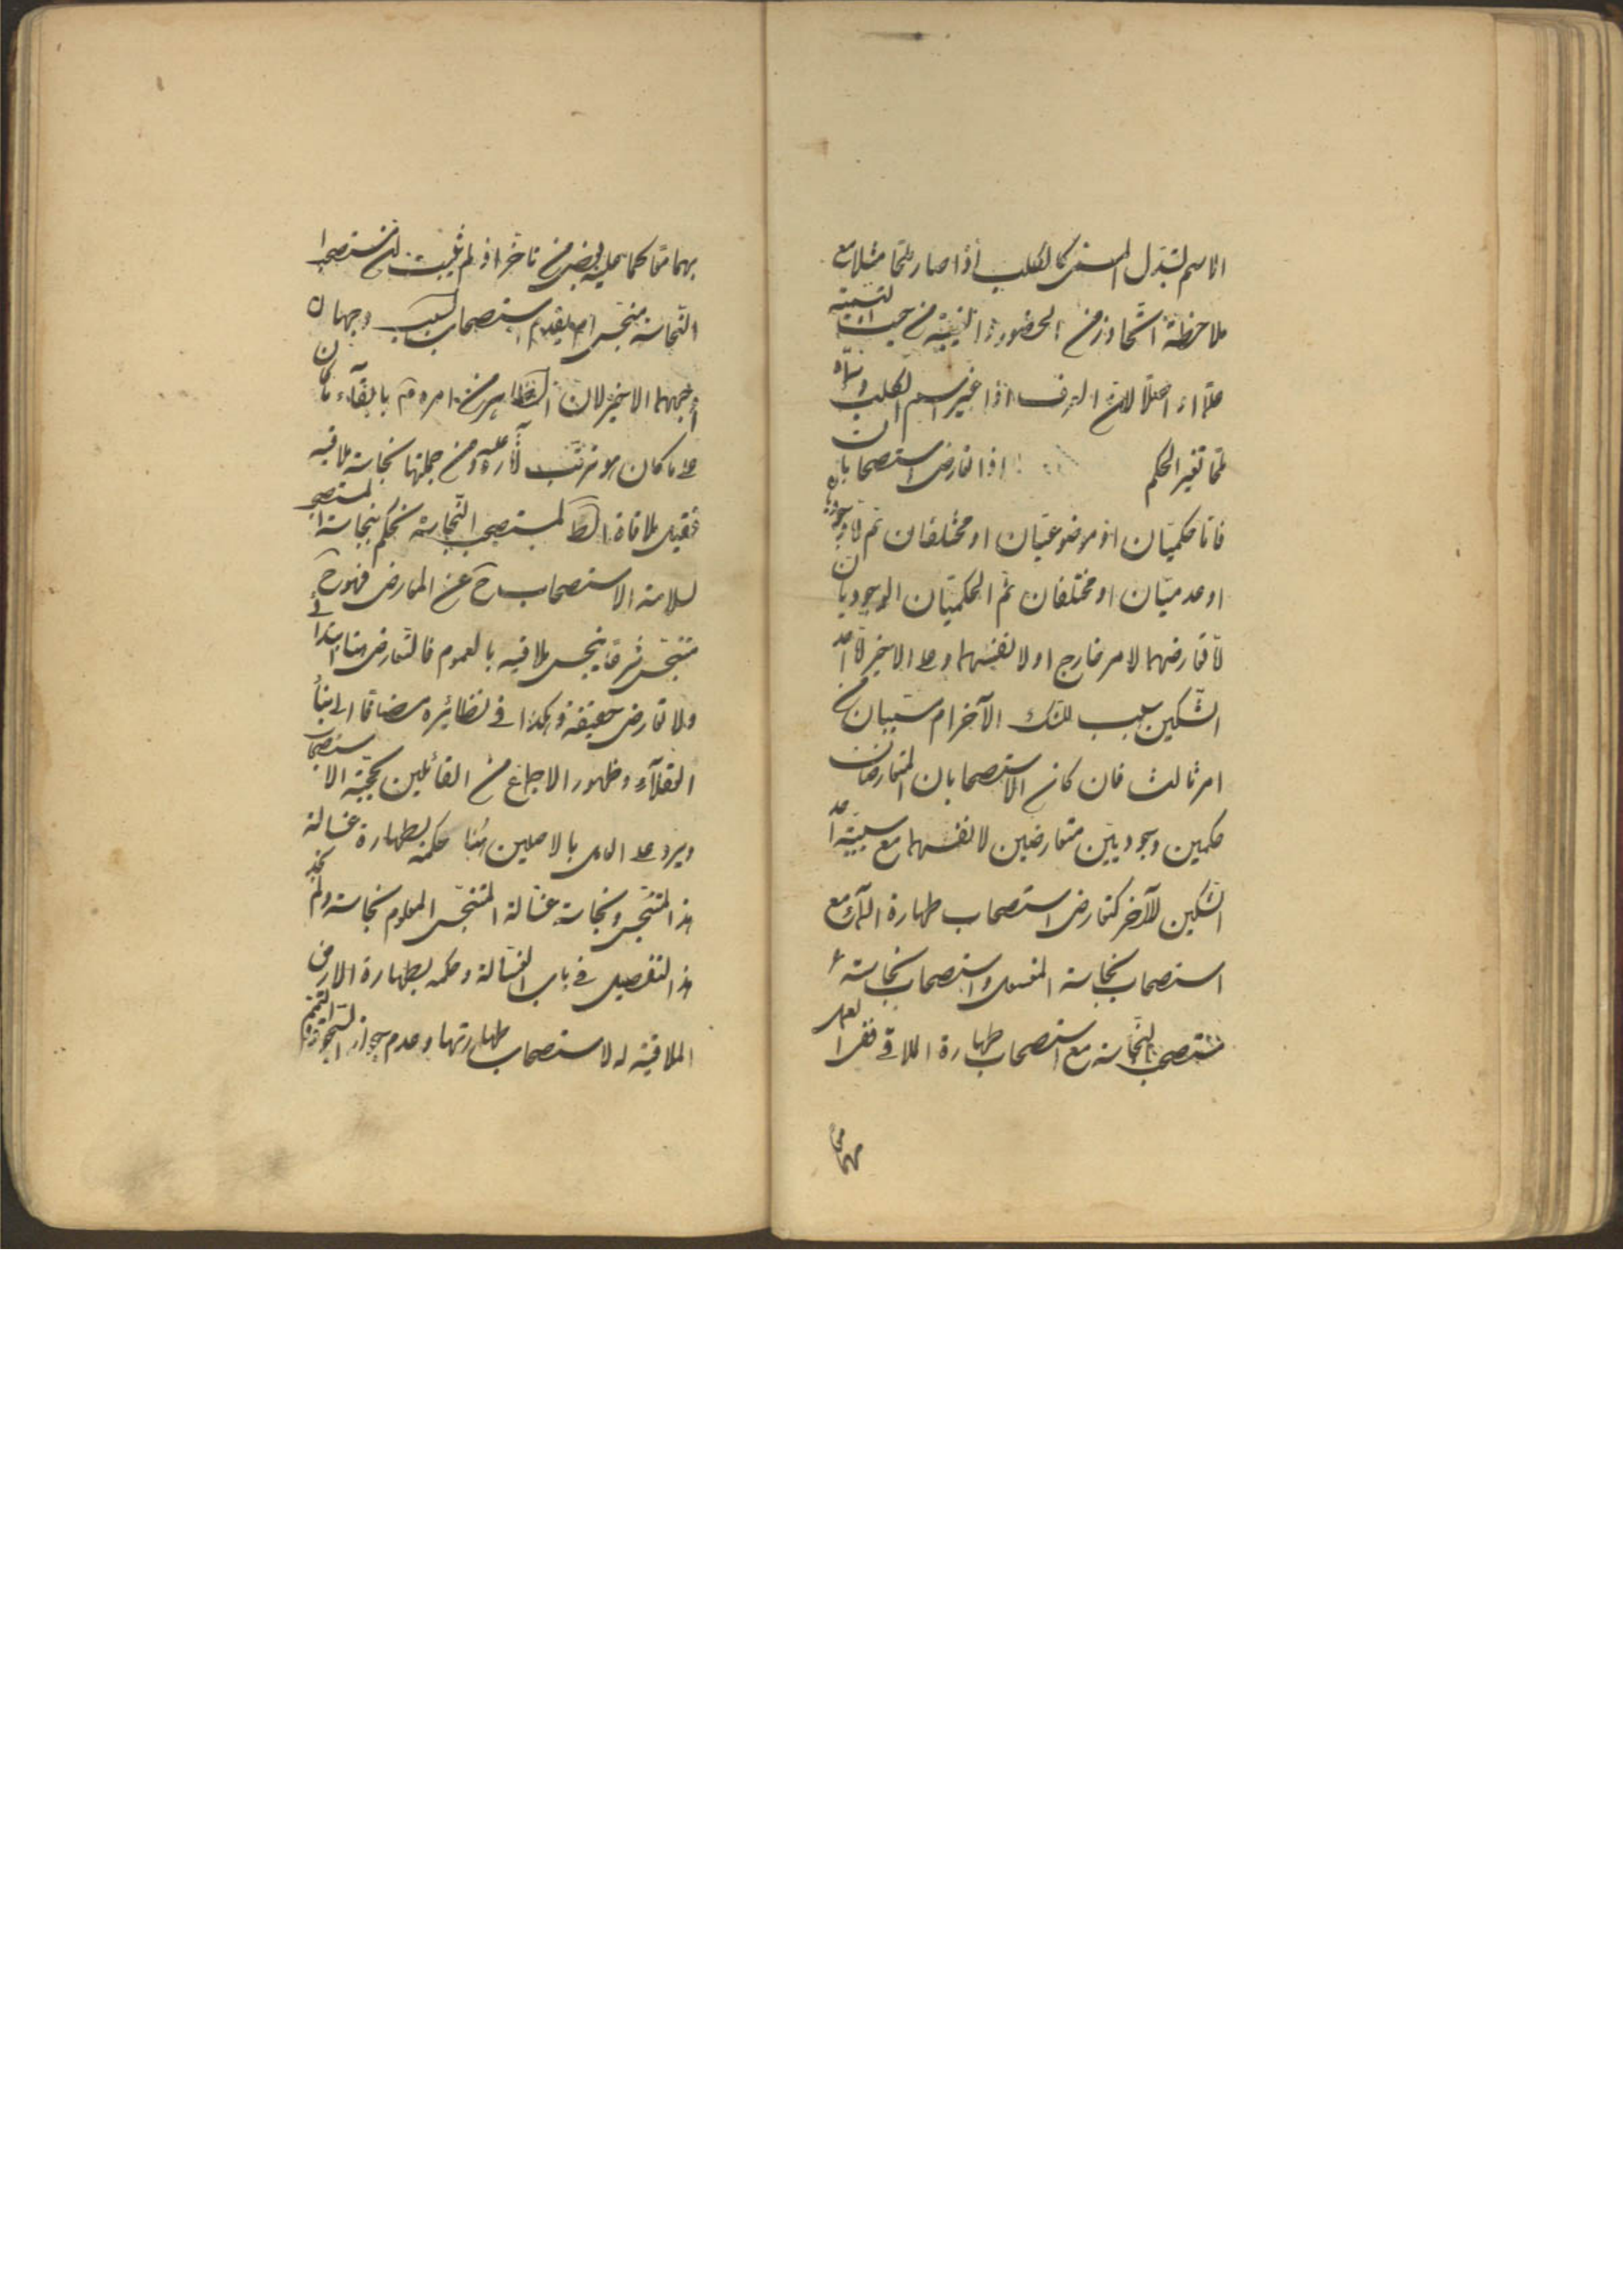 الاسم لتبدّل المسمى كالكلب اذا صار ملحا مثلا مع
ملاحظة اتحاد زمن الحضور و الغيبة من حيث التسمية
اصلا لان العرف اذا غير اسم الكلب
تغير الحكم اذا تعارض استصحابان
فاما حكميّان او موضوعيّان او مختلفان ثم
او عدميّان او مختلفان ثم الحكميّان الوجوديان
تعارضهما لامر خارج او لانفسهما و على الاخير احد
الشكين سبب للشك الآخر ام سببان من
امر ثالث فان كان الاستصحابان المتعارضان
حكمين وجوديّين متعارضين لانفسهما مع سببيّة احد
الشكين للآخر كتعارض استصحاب طهارة الماء مع
استصحاب نجاسة المغسول و استصحاب نجاسة
مستصحب النجاسة مع استصحاب طهارة الملاقي
بهما معا كما عليه بعض من تاخر اذ لم يثبت ان مستصحب
النجاسة منجس ام يقدم استصحاب السبب وجهان
اوجههما الاخير لان الظاهر من امره بابقاء ما كان
على ما كان هو ترتب آثاره عليه و من جملتها نجاسة ملاقيه
ملاقاة لمستصحب النجاسة نحكم بنجاسة المستصحب
لسلامة الاستصحاب ح عن المعارض فهو ح
متنجّس شرعا ينجس ملاقيه بالعموم فالتعارض هنا ابتدائي
ولا تعارض حقيقة و هكذا في نظائره مضافا الى بناء
العقلاء و ظهور الاجماع من القائلين بحجّية الاستصحاب
ويرد على العامل بالاصلين هنا حكمه بطهارة غسالة
هذا المتنجّس و نجاسة غسالة المتنجّس المعلوم نجاسته ولم نجد
هذا التفصيل في باب الغسالة و حكمه بطهارة الارض
الملاقية له لاستصحاب طهارتها و عدم جواز